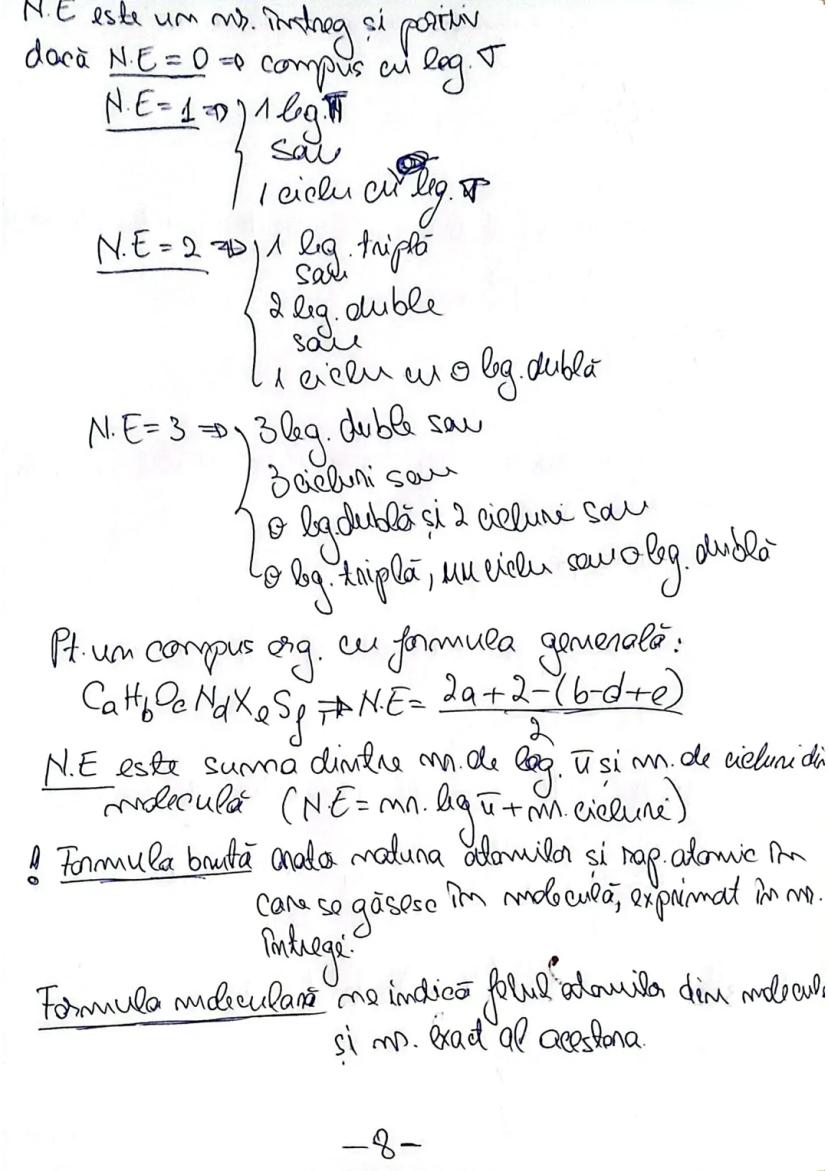 N.E este um nr. întreg și pozitiv
dacă N.E = 0 => compus cu leg. σ
N.E = 1 => 1 leg. π
sau
1 ciclu cu leg. σ
N.E = 2 => 1 leg. triplă
sau
2 leg. duble
sau
1 ciclu cu o leg. dublă
N.E = 3 => 3 leg. duble sau
3 cicluri sau
o leg. dublă și 2 cicluri sau
o leg. triplă, un ciclu sau o leg. dublă
Pt. un compus org. cu formula generală:
CaHbOcNdXeSf => N.E = 2a+2-(b-d+e)
2
N.E este suma dintre nr. de leg. π și nr. de cicluri din
moleculă (N.E = nr. leg π + nr. cicluri)
! Formula brută arată natura atomilor și rap. atomic în
care se găsesc în moleculă, exprimat în nr.
întregi.
Formula moleculară ne indică felul atomilor din molecul
și nr. exact al acestora.
-8-